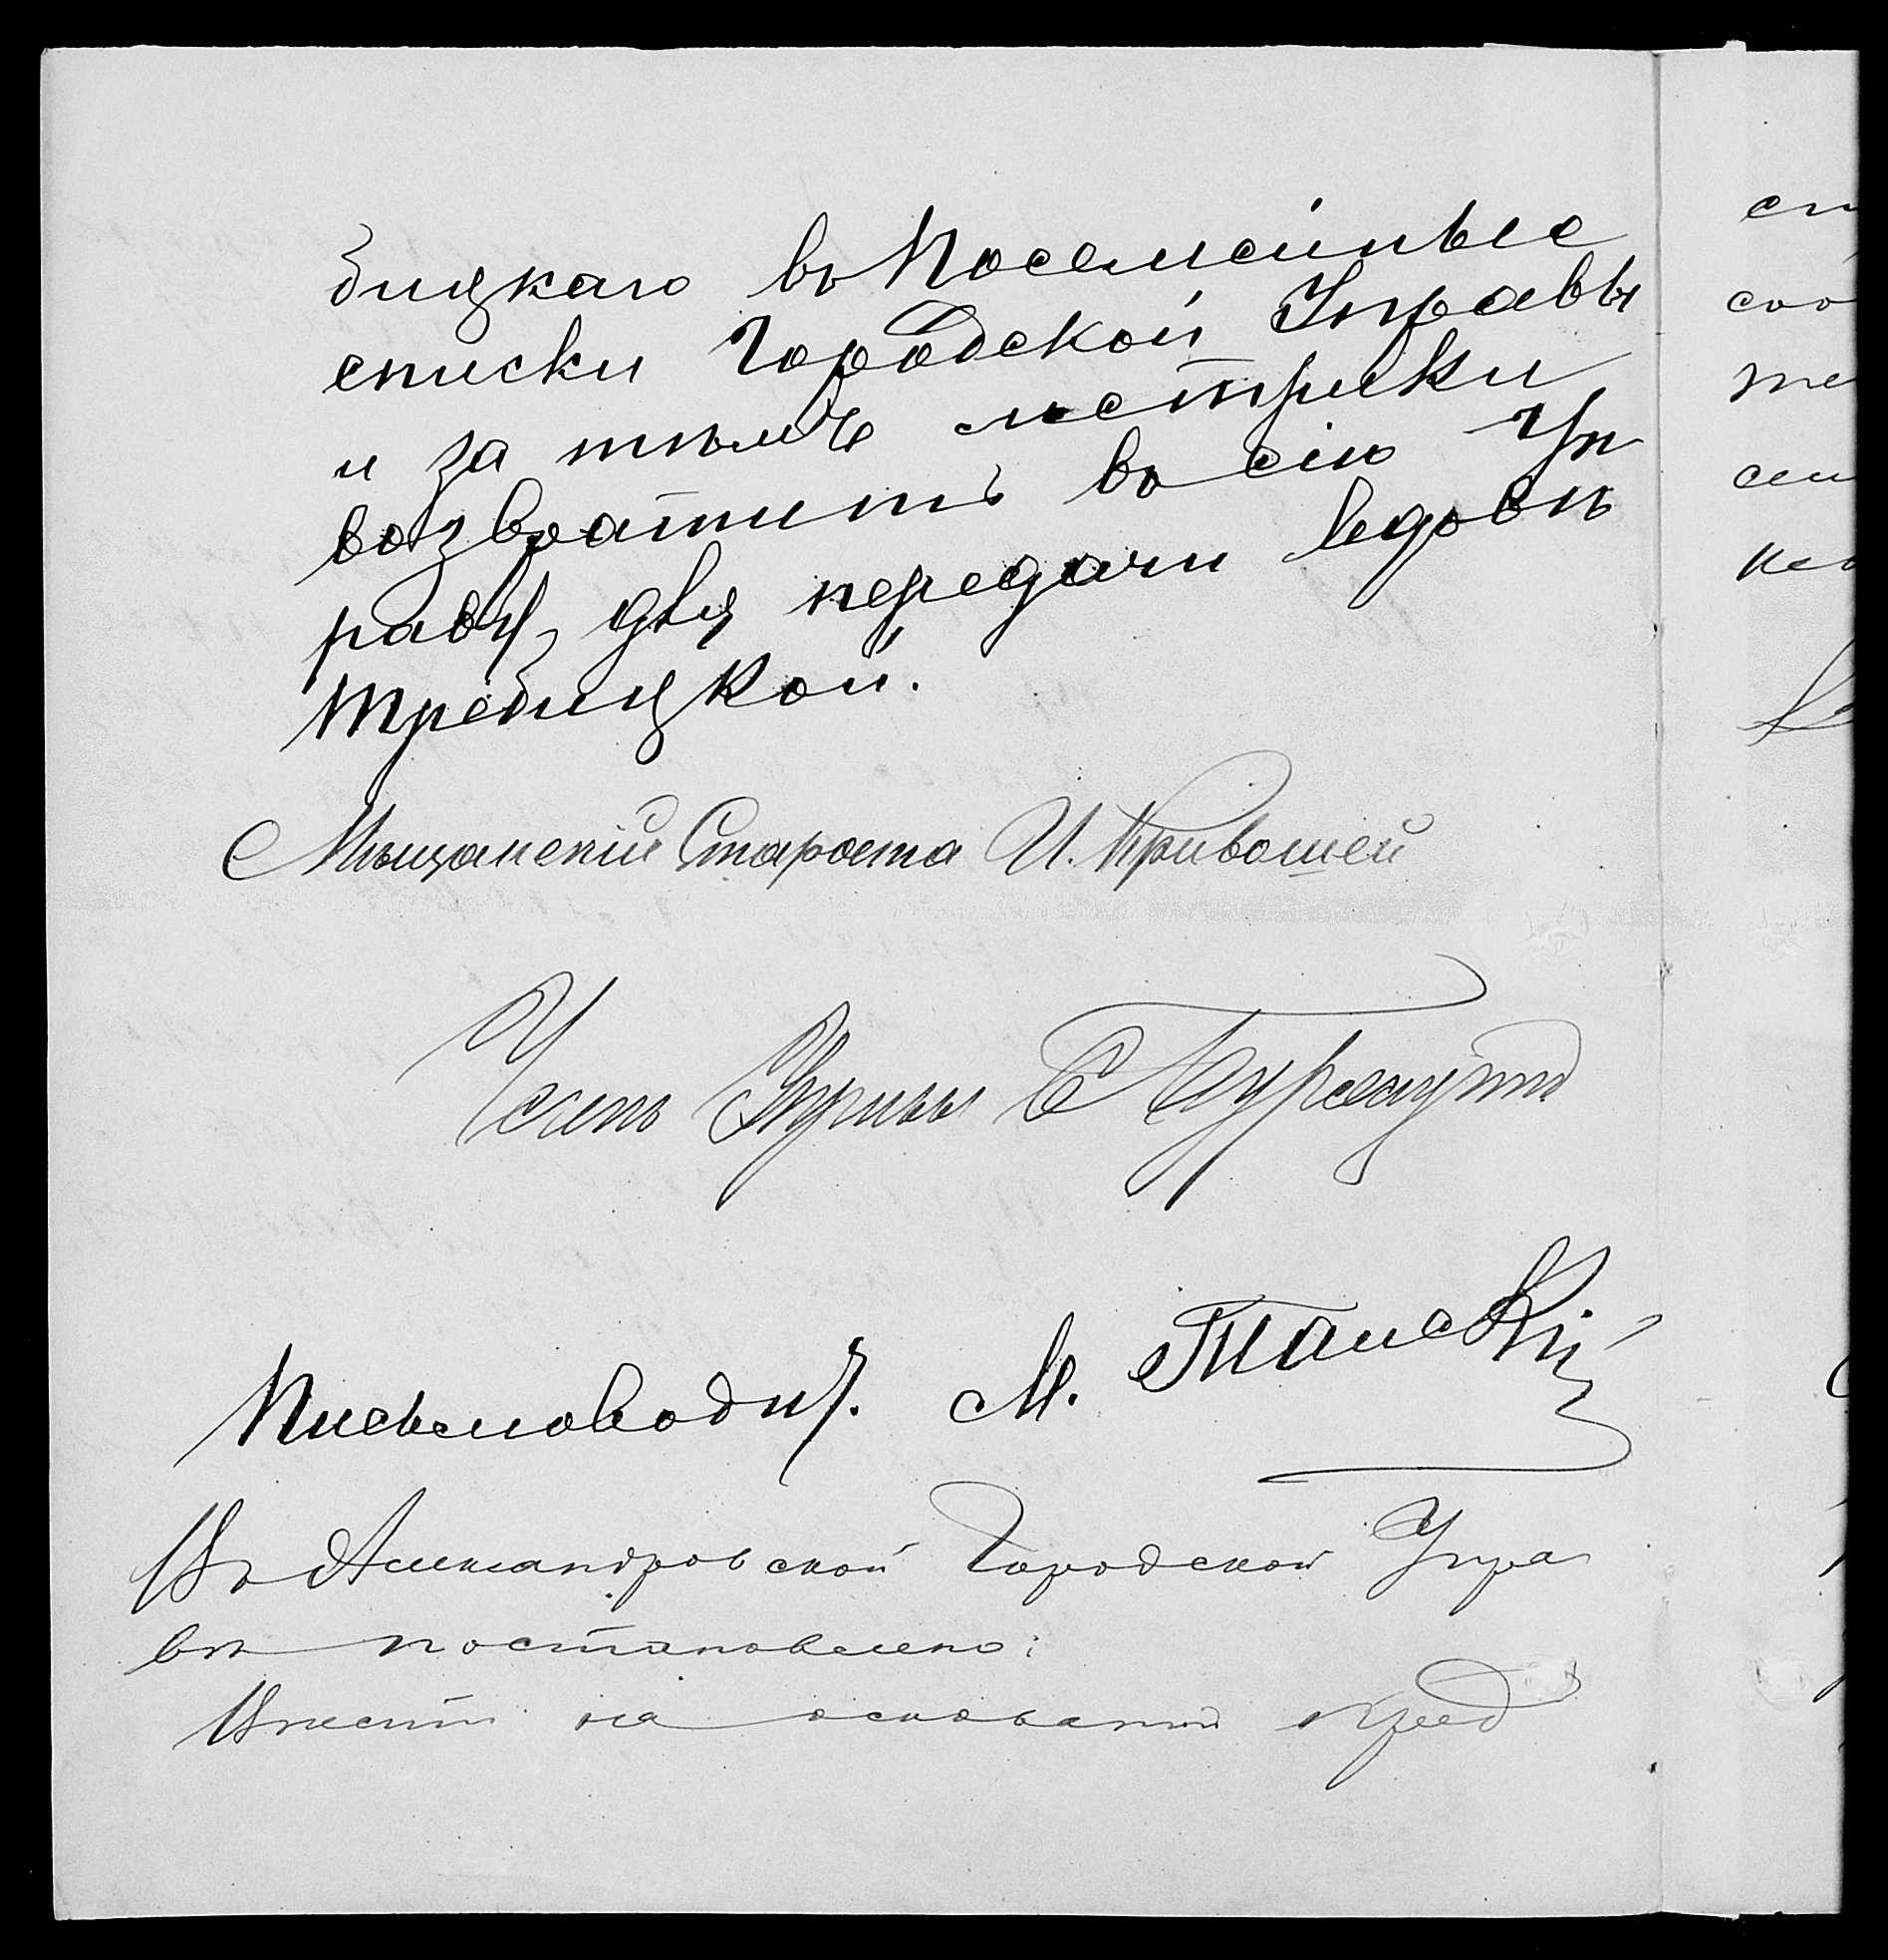 бицкаго въ Посемейные
списки Городской Управы
и за темъ метрики
возвратить въ сію Уп
раву, для передачи вдовѣ
Требицкой.
Мѣщанскій Староста И. Кривошей
Членъ Управы
Письмоводит. М. Танскій
Въ Александровской Городской Упра
вѣ постановлено:
Внести на основаніи пред